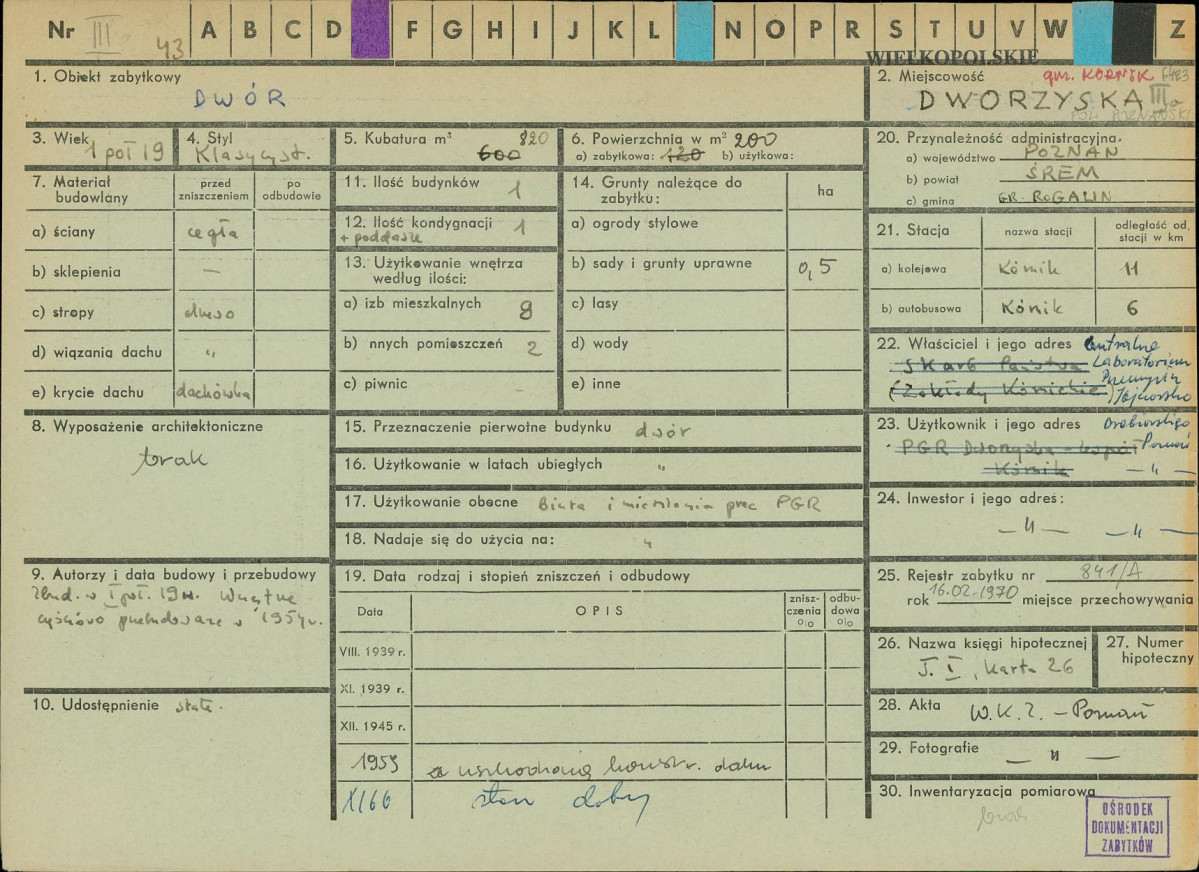 Nr III 43 A B C D F G H I J K L N O P R S T U V W Z
WIELKOPOLSKIE
1. Obiekt zabytkowy
DWÓR
2. Miejscowość gm. KÓRNIK
DWORZYSKA III
3. Wiek
1 poł 19
4. Styl
Klasycyst.
5. Kubatura m³ 820
600
6. Powierzchnia w m² 200
a) zabytkowa: 120 b) użytkowa:
20. Przynależność administracyjna.
a) województwo POZNAŃ
b) powiat ŚREM
c) gmina GR. ROGALIN
7. Materiał budowlany
przed zniszczeniem
po odbudowie
a) ściany cegła
b) sklepienia —
c) stropy
d) wiązania dachu "
e) krycie dachu dachówka
11. Ilość budynków 1
12. Ilość kondygnacji 1
+ poddasze
13. Użytkowanie wnętrza
według ilości:
a) izb mieszkalnych 8
b) nnych pomieszczeń 2
c) piwnic -
14. Grunty należące do
zabytku:
ha
a) ogrody stylowe
b) sady i grunty uprawne 0,5
c) lasy
d) wody
e) inne
21. Stacja
nazwa stacji
odległość od. stacji w km
a) kolejowa Kórnik 11
b) autobusowa Kórnik 6
22. Właściciel i jego adres Centralne
Skarb Państwa Laboratorium
(Zakłady Kórnickie) Przemysłu
23. Użytkownik i jego adres
PGR Dworzyska Poznań
Kórnik — " —
24. Inwestor i jego adres:
— " — — " —
8. Wyposażenie architektoniczne
brak
15. Przeznaczenie pierwotne budynku dwór
16. Użytkowanie w latach ubiegłych "
17. Użytkowanie obecne Biura i mieszkania prac PGR
18. Nadaje się do użycia na: "
9. Autorzy i data budowy i przebudowy
Zbud. w I poł. 19 w. Wnętrze
częściowo przebudowane w 1954 r.
10. Udostępnienie
19. Data rodzaj i stopień zniszczeń i odbudowy
Data
OPIS
znisz-czenia %
odbu-dowa %
VIII. 1939 r.
XI. 1939 r.
XII. 1945 r.
1959 uszkodzona konstr. dachu
XI 66 stan dobry
25. Rejestr zabytku nr 841/A
rok 16.02.1970 miejsce przechowywania
26. Nazwa księgi hipotecznej
T. I, karta 26
27. Numer
hipoteczny
28. Akta W.K.Z. – Poznań
29. Fotografie — " —
30. Inwentaryzacja pomiarowa
brak
OŚRODEK
DOKUMENTACJI
ZABYTKÓW